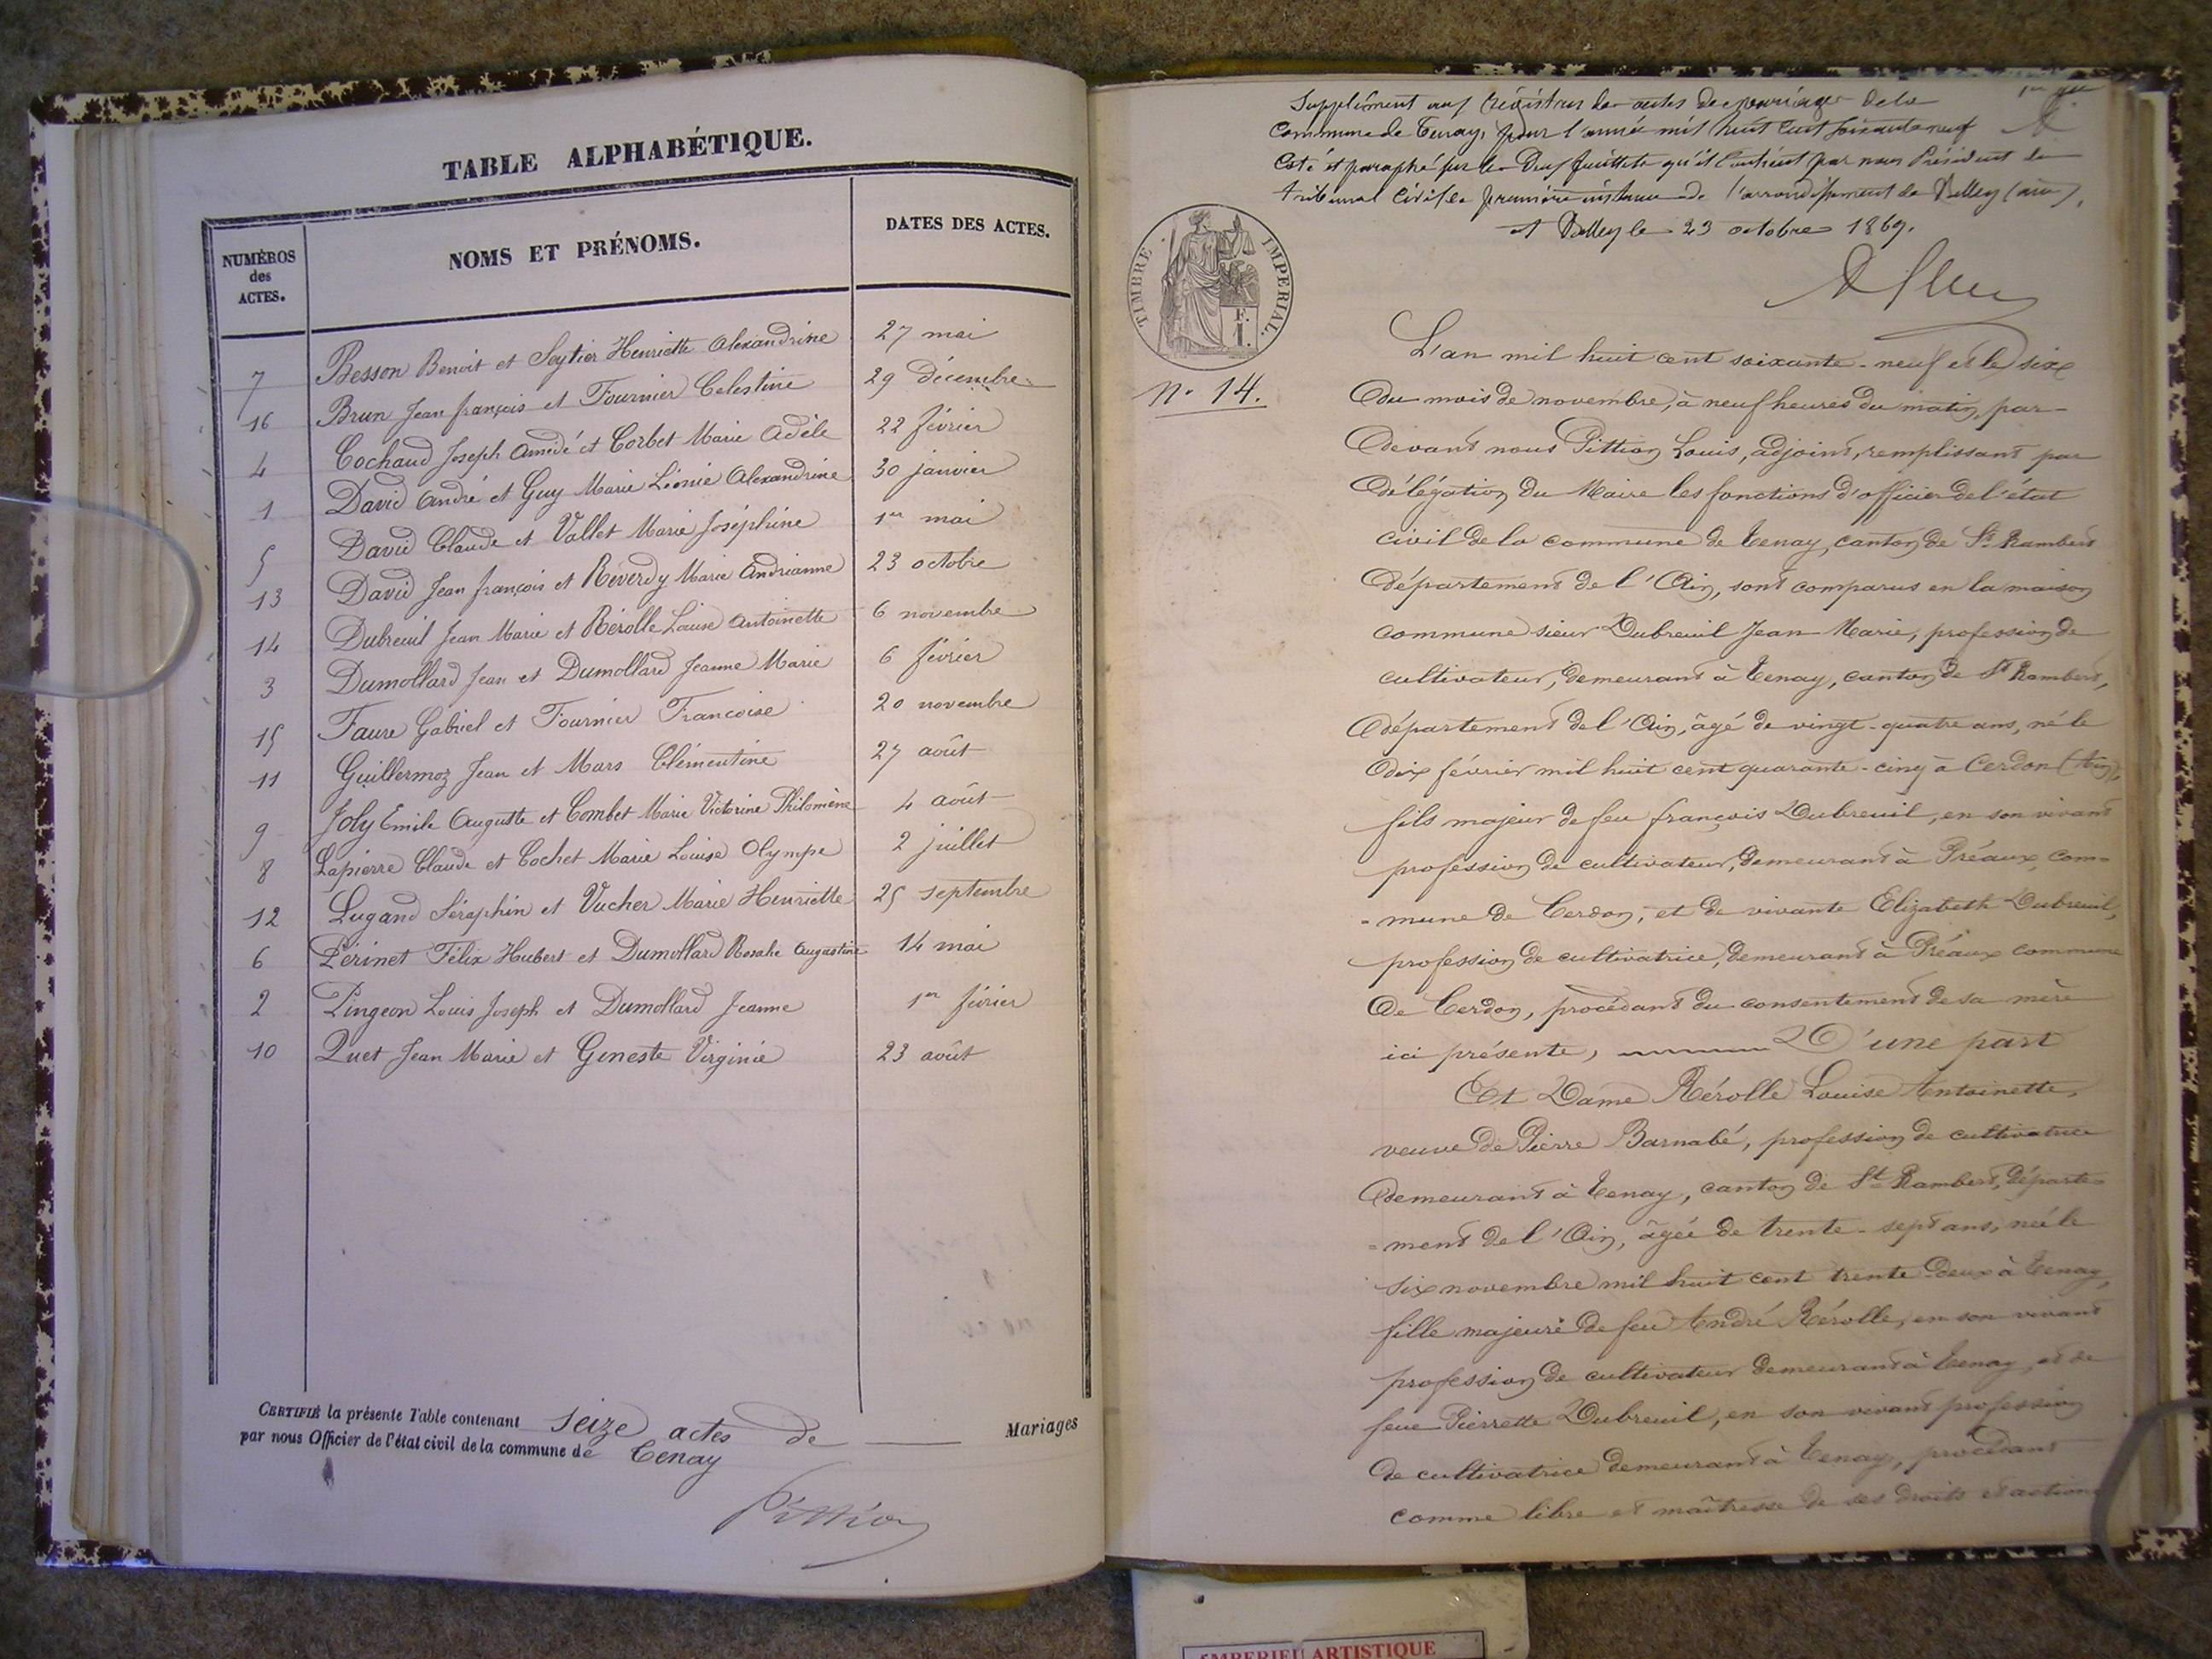 TABLE ALPHABÉTIQUE.
NUMÉROS
des
ACTES.
NOMS ET PRÉNOMS.
DATES DES ACTES.
7 Besson Benoit et Seytier Henriette Alexandrine 27 mai
16 Brun Jean françois et Fournier Celestine 29 décembre
4 Cochaud Joseph Amédé et Corbet Marie Adèle 22 février
1 David André et Guy Marie Léonie Alexandrine 30 janvier
5 David Claude et Vallet Marie Joséphine 1er mai
13 David Jean françois et Reverdy Marie Andrianne 23 octobre
14 Dubreuil Jean Marie et Rérolle Louise Antoinette 6 novembre
3 Dumollard Jean et Dumollard Jeanne Marie 6 février
15 Faure Gabriel et Fournier Francoise 20 novembre
11 Guillermoz Jean et Mars Clémentine 27 août
9 Joly Emile Auguste et Combet Marie Victorine Philomène 4 août
8 Lapierre Claude et Cochet Marie Louise Olympe 2 juillet
12 Lugand Séraphin et Vucher Marie Henriette 25 septembre
6 Périnet Félix Hubert et Dumollard Rosalie Augustine 14 mai
2 Pingeon Louis Joseph et Dumollard Jeanne 1er février
10 Quet Jean Marie et Geneste Virginie 23 août
CERTIFIÉ la présente Table contenant seize actes de Mariages
par nous Officier de l'état civil de la commune de Tenay
Pittion
Supplément aux registres des actes de mariage de la
Commune de Tenay, pour l'année mil huit cent soixante neuf
Coté et paraphé sur les deux feuillets qu'il contient par nous Président du
tribunal civil de première instance de l'arrondissement de Belley (ain),
A Belley le 23 octobre 1869.
TIMBRE IMPÉRIAL.
F.
1.
N. 14.
L'an mil huit cent soixante-neuf et le six
du mois de novembre, à neuf heures du matin, par-
devant nous Pittion Louis, adjoint, remplissant par
délégation du Maire les fonctions d'officier de l'état
civil de la commune de Tenay, canton de St Rambert
département de l'Ain, sont comparus en la maison
commune sieur Dubreuil Jean-Marie, profession de
cultivateur, demeurant à Tenay, canton de St Rambert,
département de l'Ain, âgé de vingt-quatre ans, né le
dix février mil huit cent quarante-cinq à Cerdon (Ain),
fils majeur de feu françois Dubreuil, en son vivant
profession de cultivateur, demeurant à Préaux, com-
-mune de Cerdon, et de vivante Elizabeth Dubreuil,
profession de cultivatrice, demeurant à Préaux commune
de Cerdon, procédant du consentement de sa mère
ici présente, D'une part
Et Dame Rérolle Louise Antoinette,
veuve de Pierre Barnabé, profession de cultivatrice
demeurant à Tenay, canton de St Rambert, départe-
-ment de l'Ain, âgée de trente-sept ans, née le
six novembre mil huit cent trente-deux à Tenay,
fille majeure de feu André Rérolle, en son vivant
profession de cultivateur demeurant à Tenay, et de
feue Pierrette Dubreuil, en son vivant profession
de cultivatrice demeurant à Tenay, procédant
comme libre et maîtresse de ses droits et actions
ARTISTIQUE